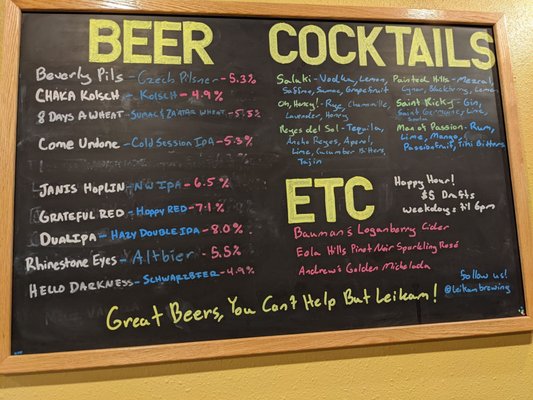 BEER
Beverly Pils - Czech Pilsner - 5.3%
CHAKA KOLSCH - KOLSCH - 4.9%
8 DAYS A WHEAT - SUMAC & ZA'ATAR WHEAT - 5.5%
Come Undone - Cold Session IPA - 5.3%
JANIS HOPLIN - NW IPA - 6.5%
GRATEFUL RED - HOPPY RED - 7.1%
DUALIPA - HAZY DOUBLE IPA - 8.0%
Rhinestone Eyes - Altbier - 5.5%
HELLO DARKNESS - SCHWARZBIER - 4.9%
COCKTAILS
Saluki - Vodka, Lemon,
Saffino, Sumac, Grapefruit
Oh, Honey! - Rye, Chamomile,
Lavender, Honey
Reyes del Sol - Tequila,
Ancho Reyes, Aperol,
Lime, Cucumber Bitters,
Tajin
Painted Hills - Mezcal,
Cynar, Blackberry, Lemon
Saint Ricky - Gin,
Saint Germaine, Lime,
Soda
Mano's Passion - Rum,
Lime, Mango,
Passionfruit, Tiki Bitters
ETC
Happy Hour!
$5 Drafts
weekdays til 6pm
Bauman's Loganberry Cider
Eola Hills Pinot Noir Sparkling Rosé
Andrew's Golden Michelada
Follow us!
@leikambrewing
Great Beers, You Can't Help But Leikam!